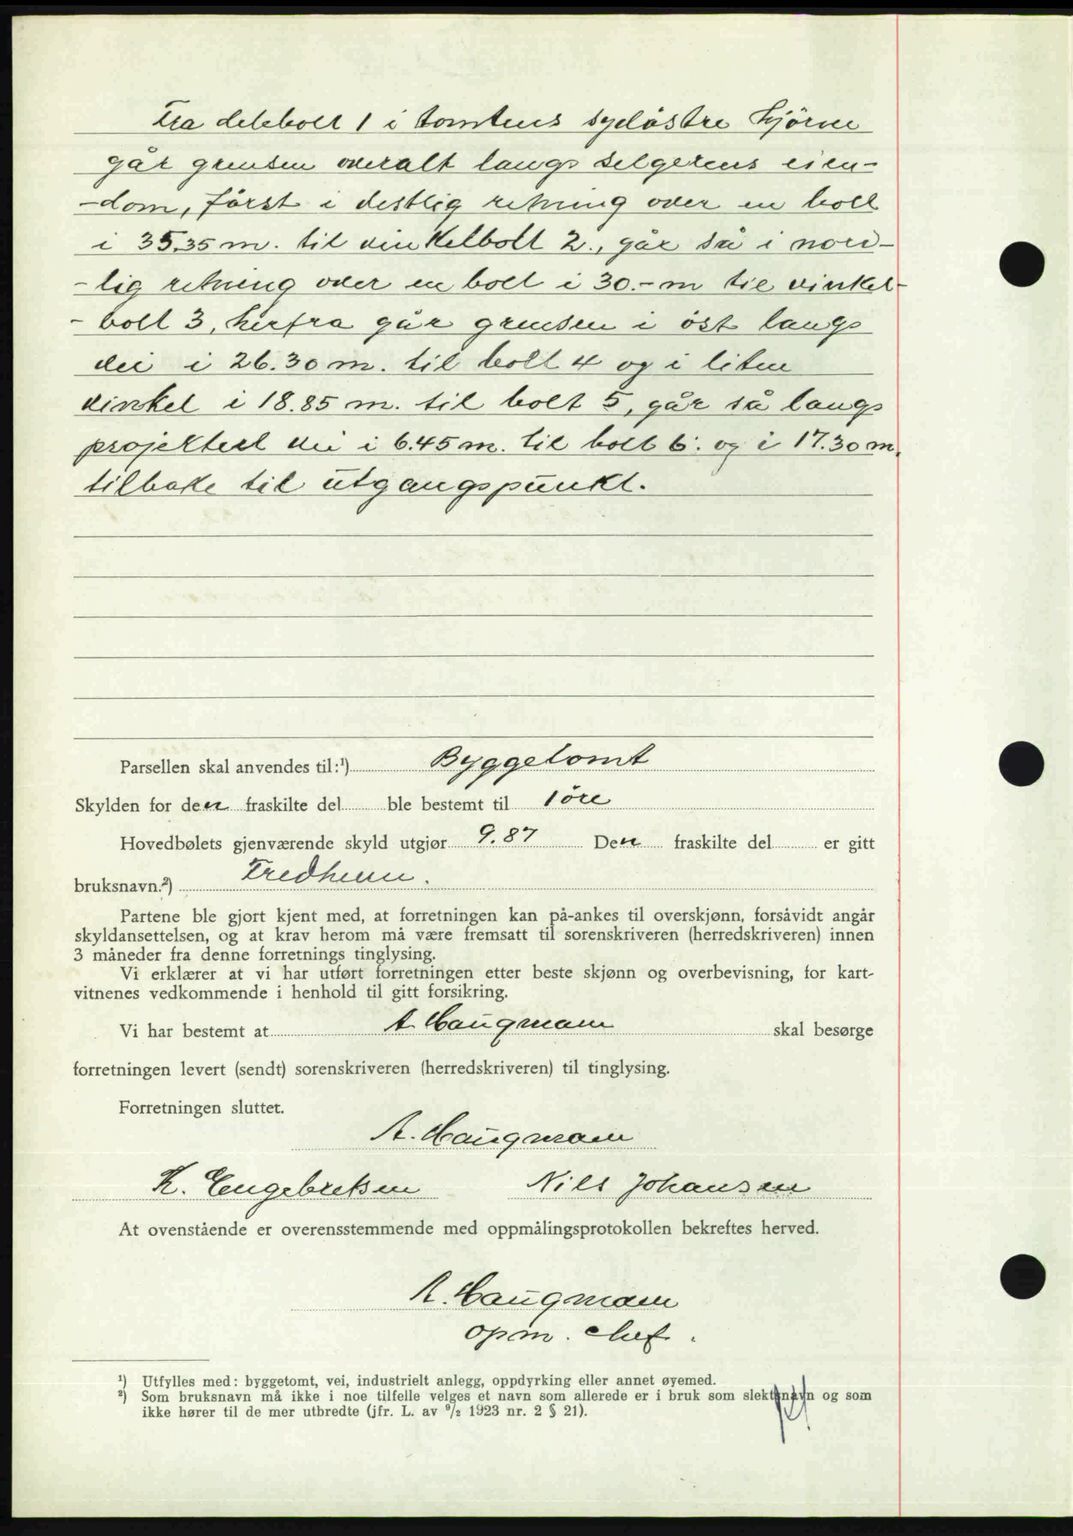 Fra delebolt 1 i tomtens sydöstre hjörne
går grensen overalt langs selgerens eien-
-dom, först i vestlig retning over en bolt
i 35.35 m. til vinkelbolt 2., går så i nord-
-lig retning over en bolt i 30.- m til vinkel-
-bolt 3, herfra går grensen i öst langs
vei i 26.30 m. til bolt 4 og i liten
vinkel i 18.85 m. til bolt 5, går så langs
projektert vei i 6.45 m. til bolt 6. og i 17.30 m.
tilbake til utgangspunkt.
Parsellen skal anvendes til:¹) Byggetomt
Skylden for den fraskilte del ble bestemt til 1 öre
Hovedbølets gjenværende skyld utgjør 9.87 Den fraskilte del er gitt
bruksnavn.²) Fredheim.
Partene ble gjort kjent med, at forretningen kan på-ankes til overskjønn, forsåvidt angår
skyldansettelsen, og at krav herom må være fremsatt til sorenskriveren (herredskriveren) innen
3 måneder fra denne forretnings tinglysing.
Vi erklærer at vi har utført forretningen etter beste skjønn og overbevisning, for kart-
vitnenes vedkommende i henhold til gitt forsikring.
Vi har bestemt at A. Haugmann skal besørge
forretningen levert (sendt) sorenskriveren (herredskriveren) til tinglysing.
Forretningen sluttet.
A. Haugmann
K. Engebretsen Nils Johansen
At ovenstående er overensstemmende med oppmålingsprotokollen bekreftes herved.
A. Haugmann
opm. chef.
¹) Utfylles med: byggetomt, vei, industrielt anlegg, oppdyrking eller annet øyemed.
²) Som bruksnavn må ikke i noe tilfelle velges et navn som allerede er i bruk som slektsnavn og som
ikke hører til de mer utbredte (jfr. L. av ⁹/₂ 1923 nr. 2 § 21).